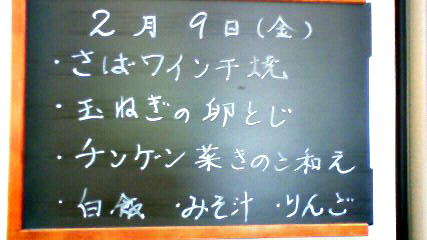 2月 9日(金)
・さばワインチ焼
・玉ねぎの卵とじ
・チンケン菜きのこ和え
・白飯 ・みそ汁 ・りんご